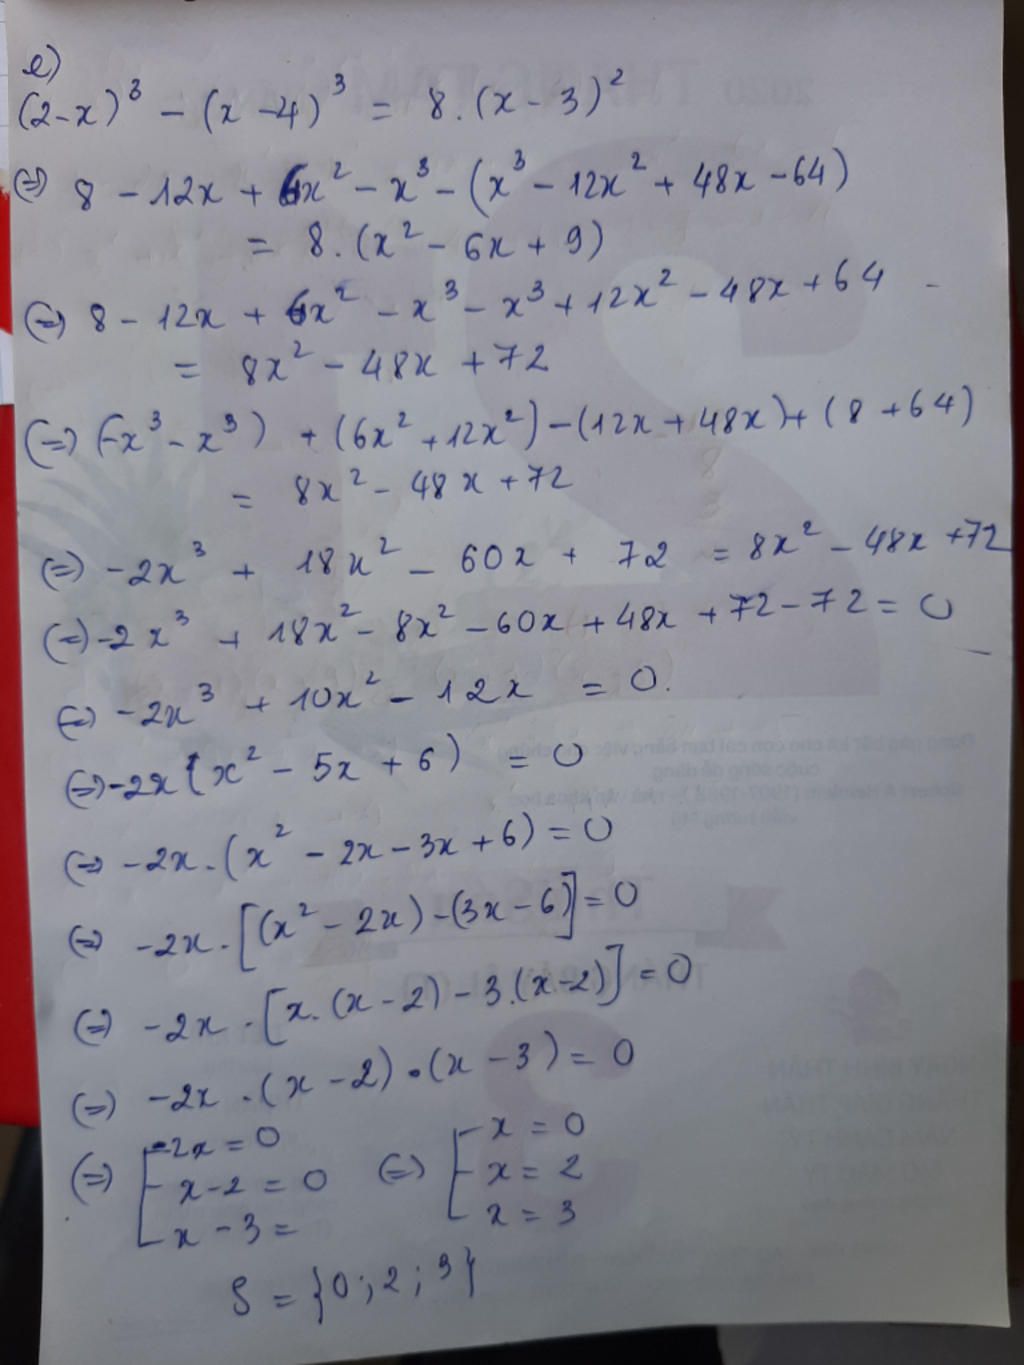 e)
(2-x)³ - (x-4)³ = 8.(x-3)²
(=) 8 - 12x + 6x² - x³ - (x³ - 12x² + 48x - 64)
= 8.(x² - 6x + 9)
(=) 8 - 12x + 6x² - x³ - x³ + 12x² - 48x + 64
= 8x² - 48x + 72
(=) (-x³ - x³) + (6x² + 12x²) - (12x + 48x) + (8 + 64)
= 8x² - 48x + 72
(=) -2x³ + 18x² - 60x + 72 = 8x² - 48x + 72
(=) -2x³ + 18x² - 8x² - 60x + 48x + 72 - 72 = 0
(=) -2x³ + 10x² - 12x = 0.
(=) -2x (x² - 5x + 6) = 0
(=) -2x.(x² - 2x - 3x + 6) = 0
(=) -2x.[(x² - 2x) - (3x - 6)] = 0
(=) -2x.[x.(x - 2) - 3.(x - 2)] = 0
(=) -2x.(x - 2).(x - 3) = 0
(=) [ -2x = 0 (=) [ x = 0
x - 2 = 0 x = 2
x - 3 = x = 3
S = {0; 2; 3}